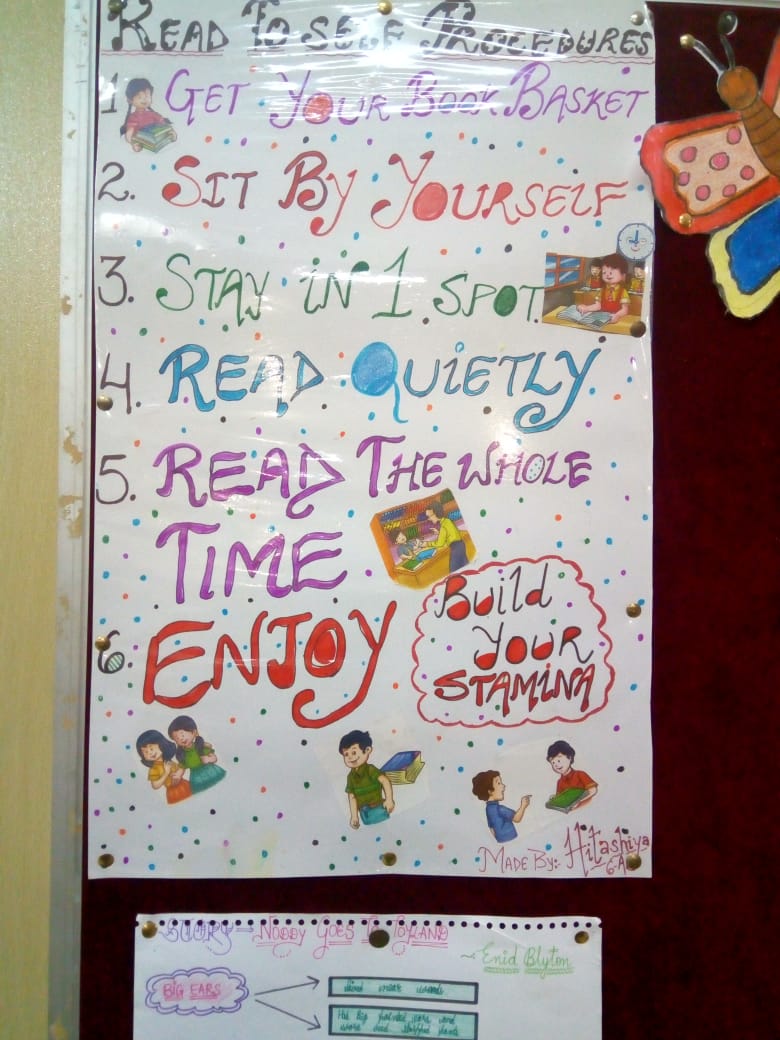 READ TO SELF PROCEDURES
1. GET YOUR BOOK BASKET
2. SIT BY YOURSELF
3. STAY IN 1 SPOT.
4. READ QUIETLY
5. READ THE WHOLE
TIME
6 ENJOY
Build
YOUR
STAMINA
MADE BY: Hitashiya
6-A
STORY → NODDY GOES TO TOYLAND
~ Enid Blyton
BIG EARS
His big pointed ears and